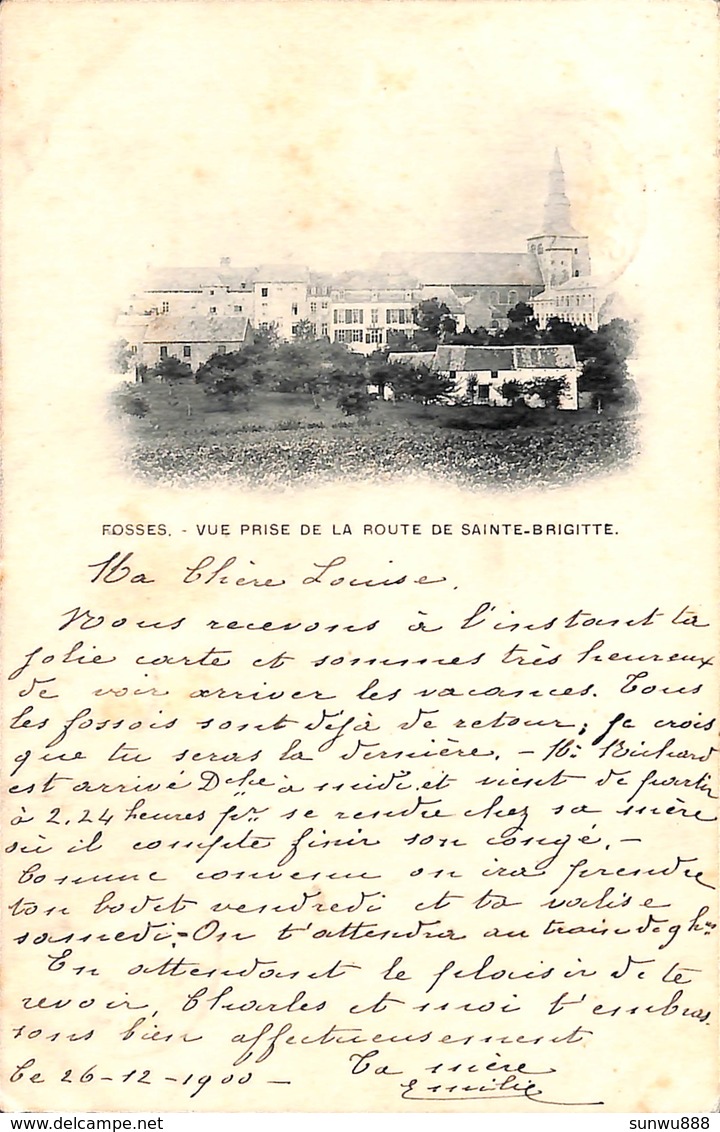 FOSSES. - VUE PRISE DE LA ROUTE DE SAINTE-BRIGITTE.
Ma Chère Louise,
Nous recevons à l'instant ta
jolie carte et sommes très heureux
de voir arriver les vacances. Tous
les fossois sont déjà de retour; je crois
que tu seras la dernière. - Mr Richard
est arrivé Dche à midi et vient de partir
à 2.24 heures pr se rendre chez sa mère
où il compte finir son congé. -
Comme convenu on ira prendre
ton bodet vendredi et ta valise
samedi. - On t'attendra au train de 9 hes
En attendant le plaisir de te
revoir, Charles et moi t'embras-
sons bien affectueusement
Ce 26-12-1900 - Ta mère
Emilie
www.delcampe.net
sunwu888